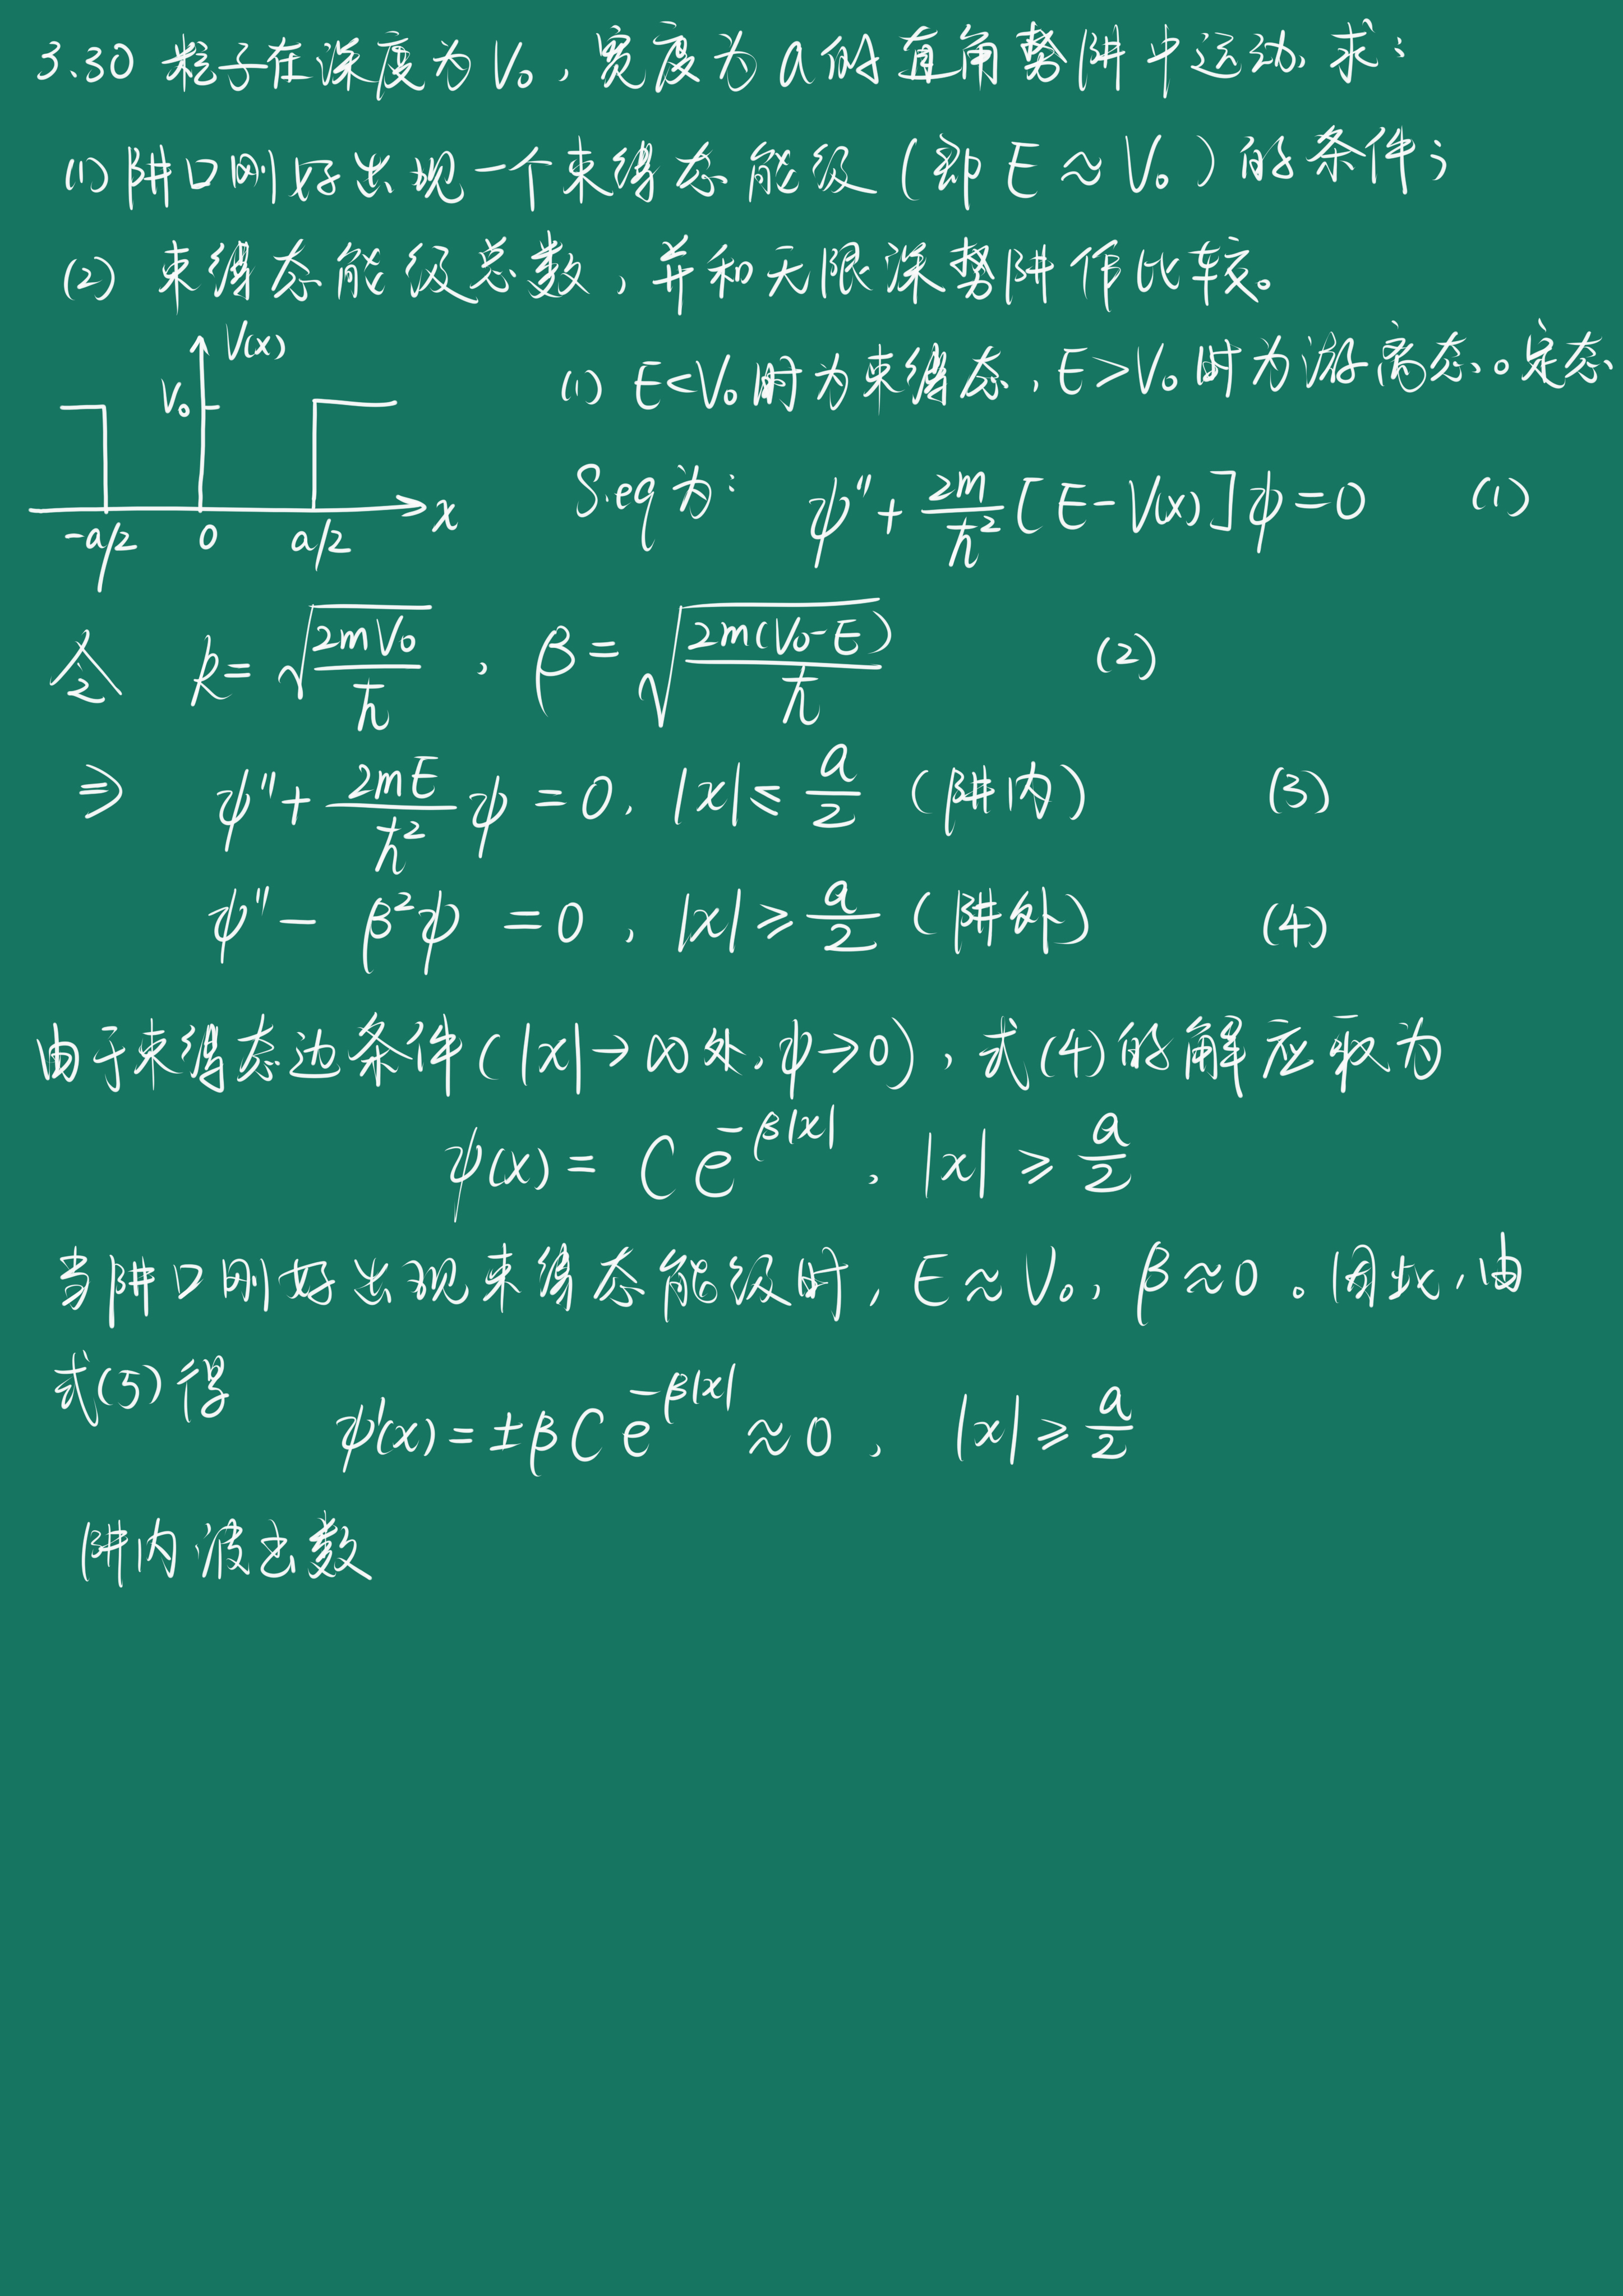 3.30 粒子在深度为 V₀，宽度为 a 的直角势阱中运动，求：
(1) 阱口刚好出现一个束缚态能级 (即 E ≈ V₀) 的条件；
(2) 束缚态能级总数，并和无限深势阱作比较。
V(x)
V₀
-a/2 0 a/2 x
(1) E<V₀ 时为束缚态，E>V₀ 时为游离态。定态
S.eq 为： ψ'' + 2m/ħ² [E-V(x)]ψ = 0 (1)
令 k = √(2mV₀/ħ) , β = √(2m(V₀-E)/ħ) (2)
⇒ ψ'' + 2mE/ħ² ψ = 0, |x| ≤ a/2 (阱内) (3)
ψ'' - β²ψ = 0, |x| ≥ a/2 (阱外) (4)
由于束缚态边条件 (|x|→∞处, ψ→0)，式(4)的解应取为
ψ(x) = C e^(-β|x|), |x| ≥ a/2
当阱口刚好出现束缚态能级时，E ≈ V₀, β ≈ 0。因此，由
式(5)得
ψ'(x) = ±βC e^(-β|x|) ≈ 0, |x| ≥ a/2
阱内波函数